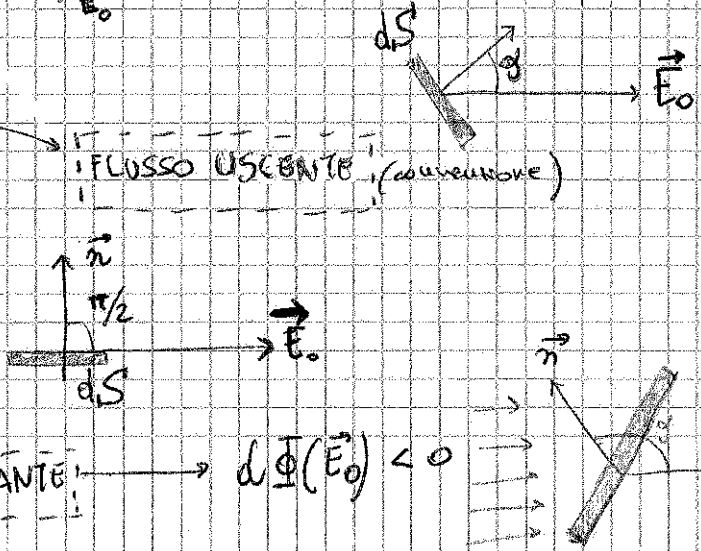 E₀
dS
ϑ
E⃗₀
FLUSSO USCENTE (convenzione)
n⃗
π/2
E⃗₀
dS
n⃗
ANTE → dΦ(E⃗₀) < 0